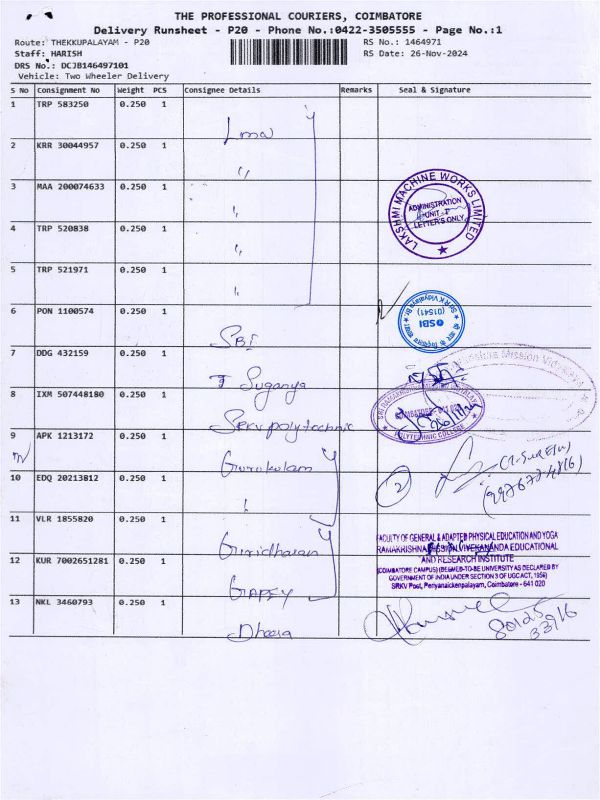 THE PROFESSIONAL COURIERS, COIMBATORE
Delivery Runsheet - P20 - Phone No.:0422-3505555 - Page No.:1
Route: THEKKUPALAYAM - P20 RS No.: 1464971
Staff: HARISH RS Date: 26-Nov-2024
DRS No.: DCJB146497101
Vehicle: Two Wheeler Delivery
S No Consignment No Weight PCS Consignee Details Remarks Seal & Signature
1 TRP 583250 0.250 1
2 KRR 30044957 0.250 1 "
3 MAA 200074633 0.250 1 "
LAKSHMI MACHINE WORKS LIMITED
ADMINISTRATION
UNIT-
LETTER'S ONLY
4 TRP 520838 0.250 1 "
5 TRP 521971 0.250 1 "
6 PON 1100574 0.250 1 SBI
SBI
(01541)
7 DDG 432159 0.250 1 Suganya
8 IXM 507448180 0.250 1 Servpolytechnic
POLYTECHNIC COLLEGE
26/11/24
9 APK 1213172 0.250 1 Gurukulam
10 EDQ 20213812 0.250 1
2
11 VLR 1855820 0.250 1 Guridharan
FACULTY OF GENERAL & ADAPTED PHYSICAL EDUCATION AND YOGA
RAMAKRISHNA MISSION VIVEKANANDA EDUCATIONAL
AND RESEARCH INSTITUTE
(COIMBATORE CAMPUS) (DEEMED-TO-BE UNIVERSITY AS DECLARED BY
GOVERNMENT OF INDIA UNDER SECTION 3 OF UGC ACT, 1956)
SRKV Post, Periyanaickenpalayam, Coimbatore - 641 020
12 KUR 7002651281 0.250 1
13 NKL 3460793 0.250 1
80125
33916